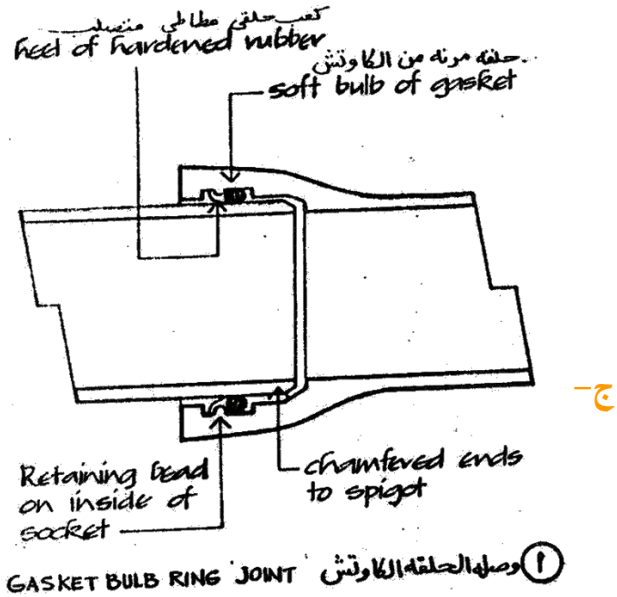 كعب حلقي مطاطي متصلب
heel of hardened rubber
حلقه مرنه من الكاوتش
soft bulb of gasket
ج-
Retaining bead
on inside of
socket
chamfered ends
to spigot
GASKET BULB RING JOINT وصله الحلقه الكاوتش ١